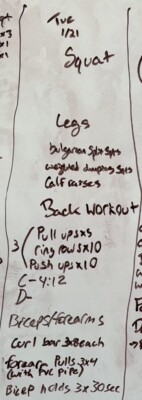 Tue
1/21
Squat
Legs
bulgarian split sqts
weighted dumptruq sqts
Calf raises
Back Workout
3 ( Pull ups x5
ring rows x10
Push ups x10
C - 4:12
D-
Biceps/forearms
Curl bar 3x8each
forearm Pulls 3x4
(with PVC pipe)
Bicep holds 3x30sec